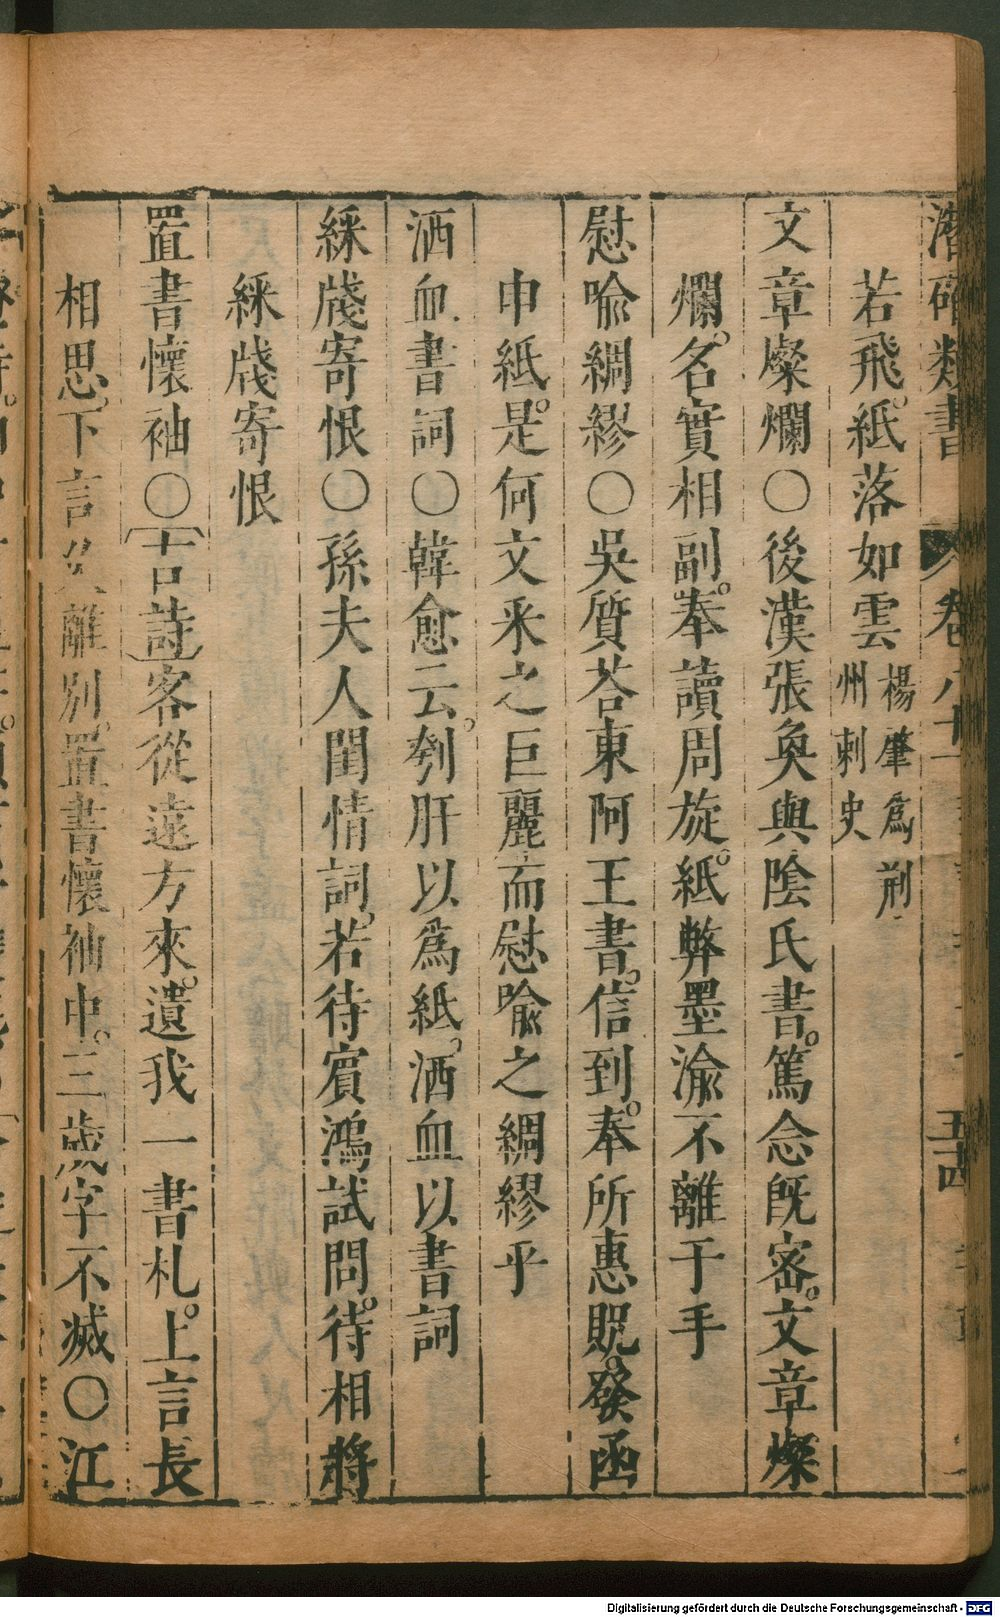 潛確類書 卷八十一 五十四
若飛。紙落如雲楊肇爲荆州刺史
文章燦爛○後漢張奐與陰氏書。篤念旣密。文章燦
爛。名實相副。奉讀周旋。紙弊墨渝不離于手
慰喩綢繆○吳質荅東阿王書。信到。奉所惠貺。發函
申紙。是何文釆之巨麗而慰喩之綢繆乎
洒血書詞○韓愈云。刳肝以爲紙。洒血以書詞
綵牋寄恨○孫夫人閨情詞。若待賓鴻試問。待相將
綵牋寄恨
置書懷袖○古詩客從遠方來。遺我一書札。上言長
相思。下言久離别。置書懷袖中。三歲字不滅○江
Digitalisierung gefördert durch die Deutsche Forschungsgemeinschaft - DFG